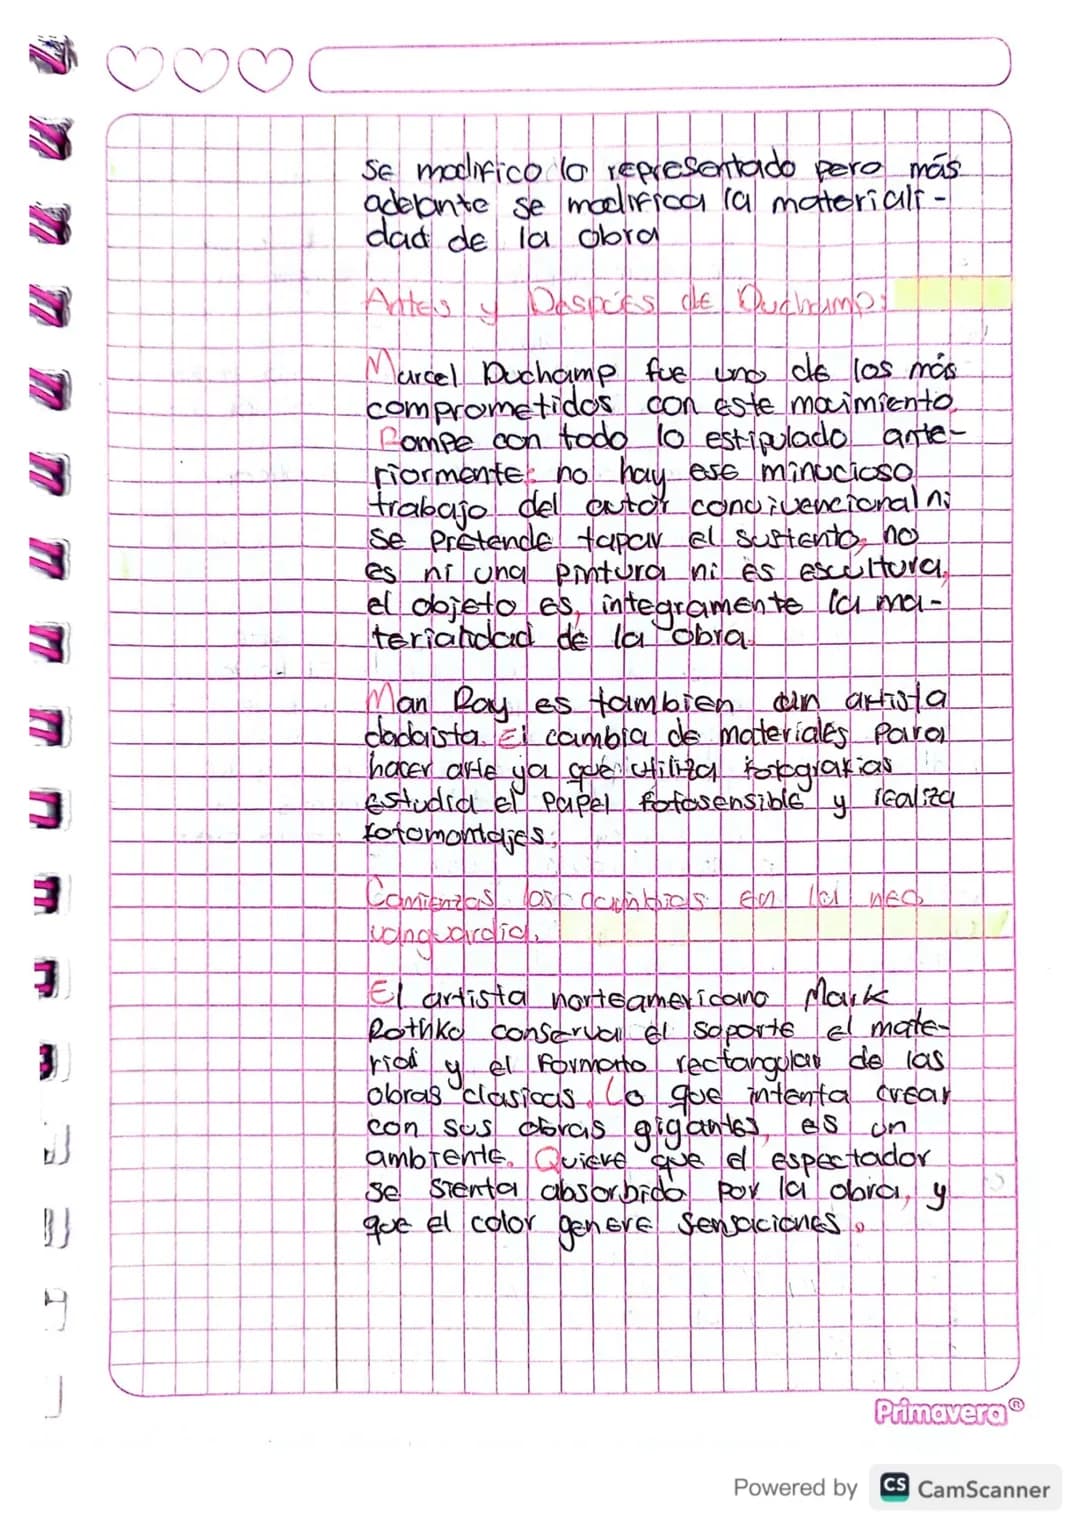 se modifico lo representado pero más
adelante se modifica la materiali-
dad de la obra
Antes y Despúes de Duchamp:
Marcel Duchamp fue uno de los más
comprometidos con este movimiento.
Rompe con todo lo estipulado ante-
riormente: no hay ese minucioso
trabajo del autor convivencional ni
se pretende tapar el sustento, no
es ni una pintura ni es escultura,
el objeto es, integramente la ma-
terialidad de la obra.
Man Ray es tambien un artista
dadaista. El cambia de materiales para
hacer arte ya que utiliza fotografias
estudia el papel fotosensible y realiza
fotomontajes.
Comienzas los cambios en la neo
vanguardia.
El artista norteamericano Mark
Rothko conserva el soporte el mate-
rial y el formato rectangular de las
obras clasicas. Lo que intenta crear
con sus obras gigantes, es un
ambiente. Quiere que el espectador
se sienta absorbido por la obra, y
que el color genere sensaciones.
Primavera®
Powered by CS CamScanner